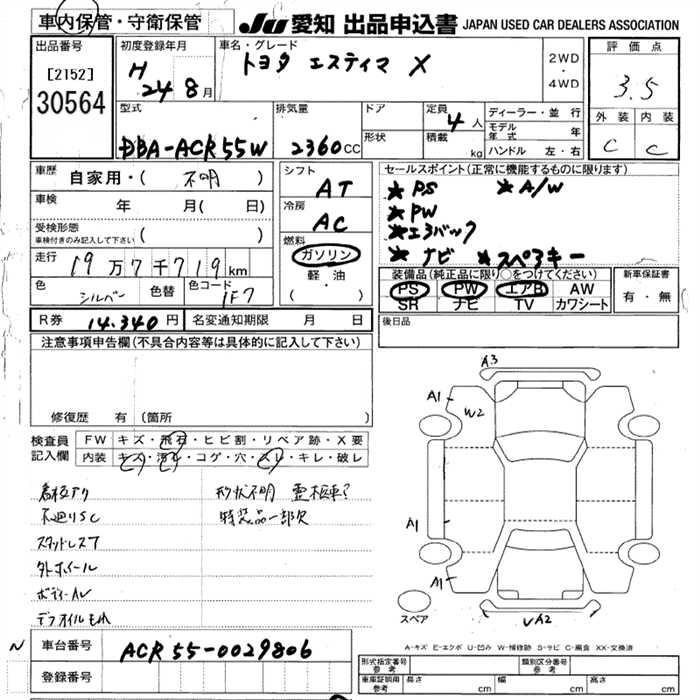 車内保管・守衛保管 JU 愛知 出品申込書 JAPAN USED CAR DEALERS ASSOCIATION
出品番号 [2152] 30564
初度登録年月 H 24 8月
車名・グレード トヨタ エスティマ X
2WD・4WD
評価点 3.5
外装 内装
C C
型式 DBA-ACR55W
排気量 2360cc
ドア 形状
定員 4人
積載 kg
ディーラー・並行
モデル年式 年
ハンドル 左・右
車歴 自家用・( 不明 )
車検 年 月( 日)
受検形態 ( )
車検付きのみ記入して下さい
走行 19万7千719km
色 シルバー 色替 色コード 1F7
シフト AT
冷房 AC
燃料 ガソリン
軽油
( ・ )
セールスポイント(正常に機能するものに限ります)
★ PS ★ A/W
★ PW
★ エアバック
★ ナビ ★ スペアキー
装備品(純正品に限り○をつけてください)
PS PW エアB AW
SR ナビ TV カワシート
新車保証書
有・無
R券 14,340円 名変通知期限 月 日
後日品
注意事項申告欄(不具合内容等は具体的に記入して下さい)
修復歴 有 (箇所 )
検査員記入欄
FW キズ・飛石・ヒビ割・リペア跡・X要
内装 キズ・汚レ・コゲ・穴・スレ・キレ・破レ
下廻りSC
スタッドレス7
外ホイール
ボディーAU
デフオイルもれ
形状不明
特装品一部欠
A3
A1
W2
A1
A1
A2
スペア
A-キズ E-エクボ U-凹み W-補修跡 S-サビ C-腐食 XX-交換済
N
車台番号 ACR55-0029806
登録番号
形式指定番号 参考
類別区分番号 参考
車庫証明用 参考 長さ cm 幅 cm 高さ cm